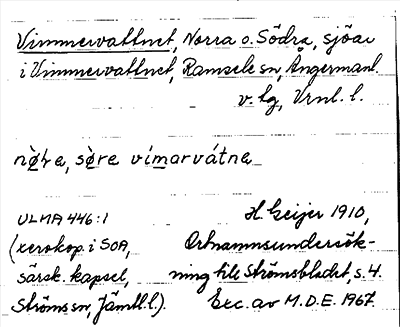 Vimmervattnet, Norra o. Södra, sjöar
i Vimmervattnet, Ramsele sn, Ångermanl.
v. lg, Vrnl. l.
nò̤ɹa, sø̀re vímarvátna
ULMA 446:1
(xerokop. i SOA,
särsk. kapsel,
Ströms sn, Jämtl. l.).
H. Geijer 1910,
Ortnamnsundersök-
ning till Strömsbladet, s. 4.
Exc. av M.D.E. 1967.